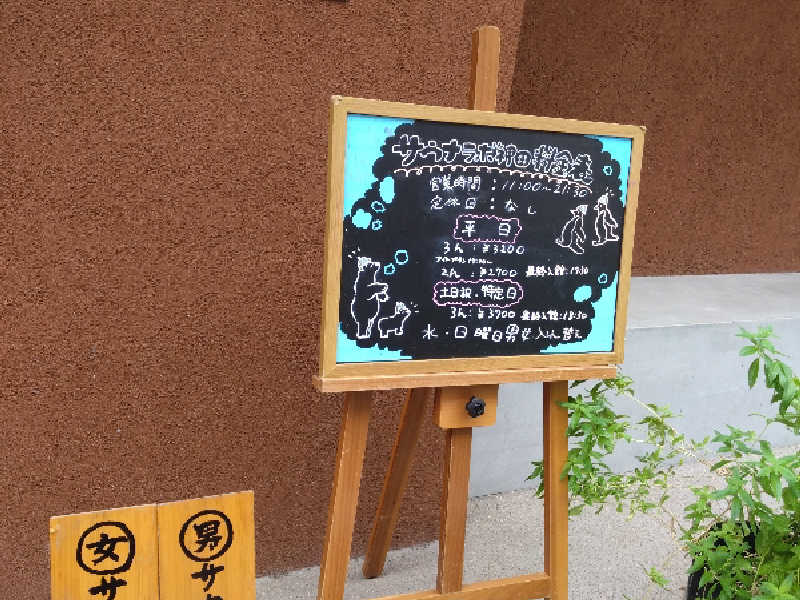 サウナラボ神田 料金表
営業時間：11:00～21:30
定休日：なし
平日
3h：¥3200
2h：¥2700 最終入館：19:30
土日祝・特定日
3h：¥3700 最終入館：18:30
水・日曜日男女入れ替え
女 サ
男 サウ